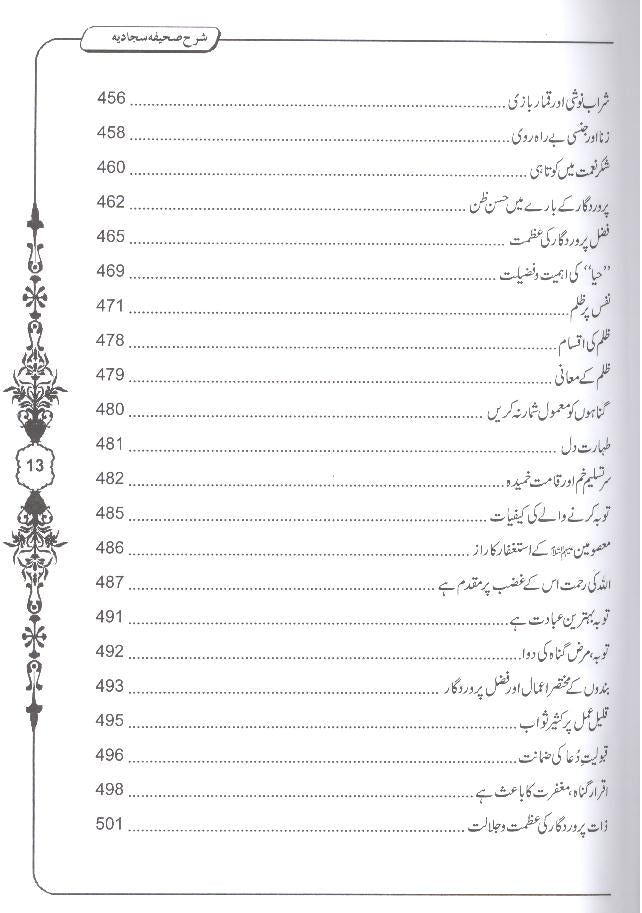 شرح صحیفہ سجادیہ
شراب نوشی اور قمار بازی ........ 456
زنا اور جنسی بے راہ روی ........ 458
شکر نعمت میں کوتاہی ........ 460
پروردگار کے بارے میں حسن ظن ........ 462
فضل پروردگار کی عظمت ........ 465
"حیا" کی اہمیت و فضیلت ........ 469
نفس پر ظلم ........ 471
ظلم کی اقسام ........ 478
ظلم کے معانی ........ 479
گناہوں کو معمول شمار نہ کریں ........ 480
طہارت دل ........ 481
سر تسلیم خم اور قامت خمیدہ ........ 482
توبہ کرنے والے کی کیفیات ........ 485
معصومین علیہم السلام کے استغفار کا راز ........ 486
اللہ کی رحمت اس کے غضب پر مقدم ہے ........ 487
توبہ بہترین عبادت ہے ........ 491
توبہ، مرض گناہ کی دوا ........ 492
بندوں کے مختصر اعمال اور فضل پروردگار ........ 493
قلیل عمل پر کثیر ثواب ........ 495
قبولیتِ دُعا کی ضمانت ........ 496
اقرار گناہ، مغفرت کا باعث ہے ........ 498
ذات پروردگار کی عظمت و جلالت ........ 501
13